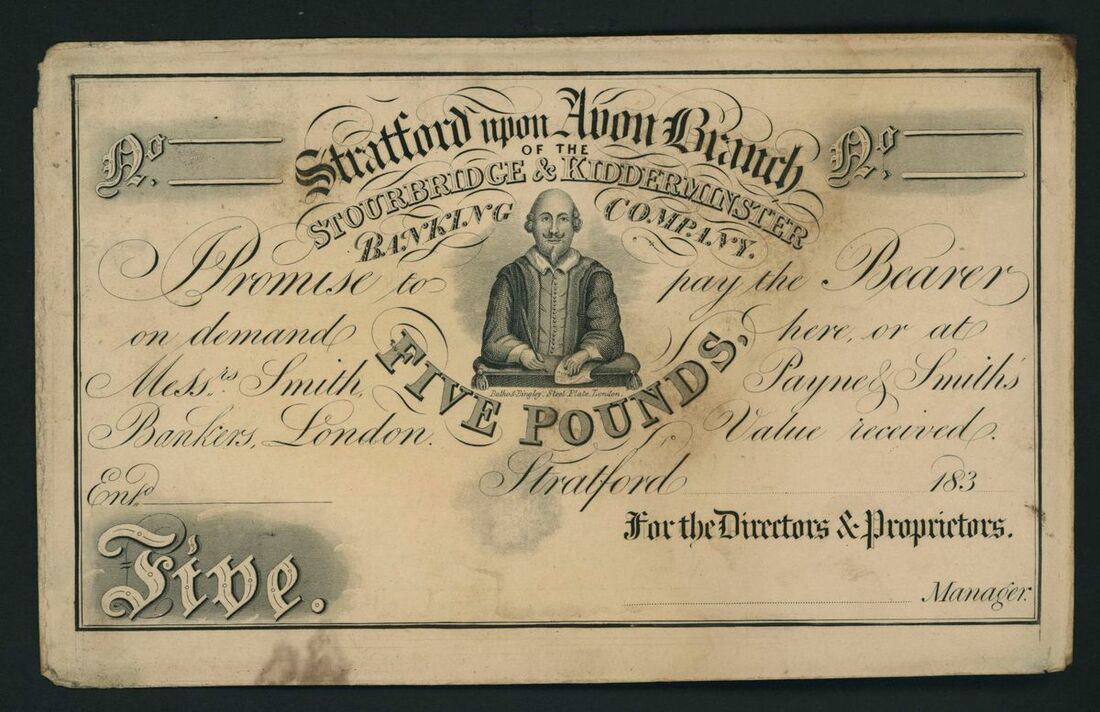 No.
Stratford upon Avon Branch
No.
OF THE
STOURBRIDGE & KIDDERMINSTER
BANKING COMPANY.
I Promise to pay the Bearer
on demand here, or at
Messrs Smith, Payne & Smith's
Bankers, London. Value received.
FIVE POUNDS,
Balhod & Bingley. Steel Plate. London.
Stratford 183
Entd
For the Directors & Proprietors.
Five.
Manager.